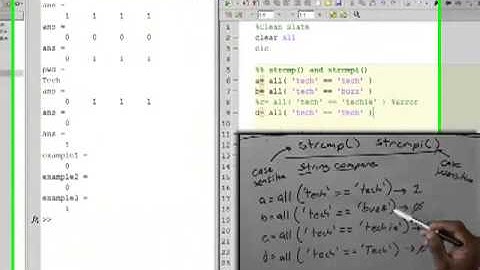 ans =
1 1 1 1
ans =
0 0 0 0
pwd =
Tech
ans =
0 1 1 1
ans =
0
ans =
1
example1 =
0
example2 =
0
example3 =
1
fx >>
1 %Clean Slate
2 clear all
3 clc
4
5 %% strcmp() and strcmpi()
6 a= all( 'tech' == 'tech' )
7 b= all( 'tech' == 'buzz' )
8 %c= all( 'tech' == 'techie' ) %error
9 d= all( 'tech' == 'tech' )
strcmp() strcmpi()
case sensitive
String compare
case insensitive
a = all ('tech' == 'tech') →
b = all ('tech' == 'buzz') → ø
c = all ('tech' == 'techie') →
d = all ('tech' == 'Tech') →